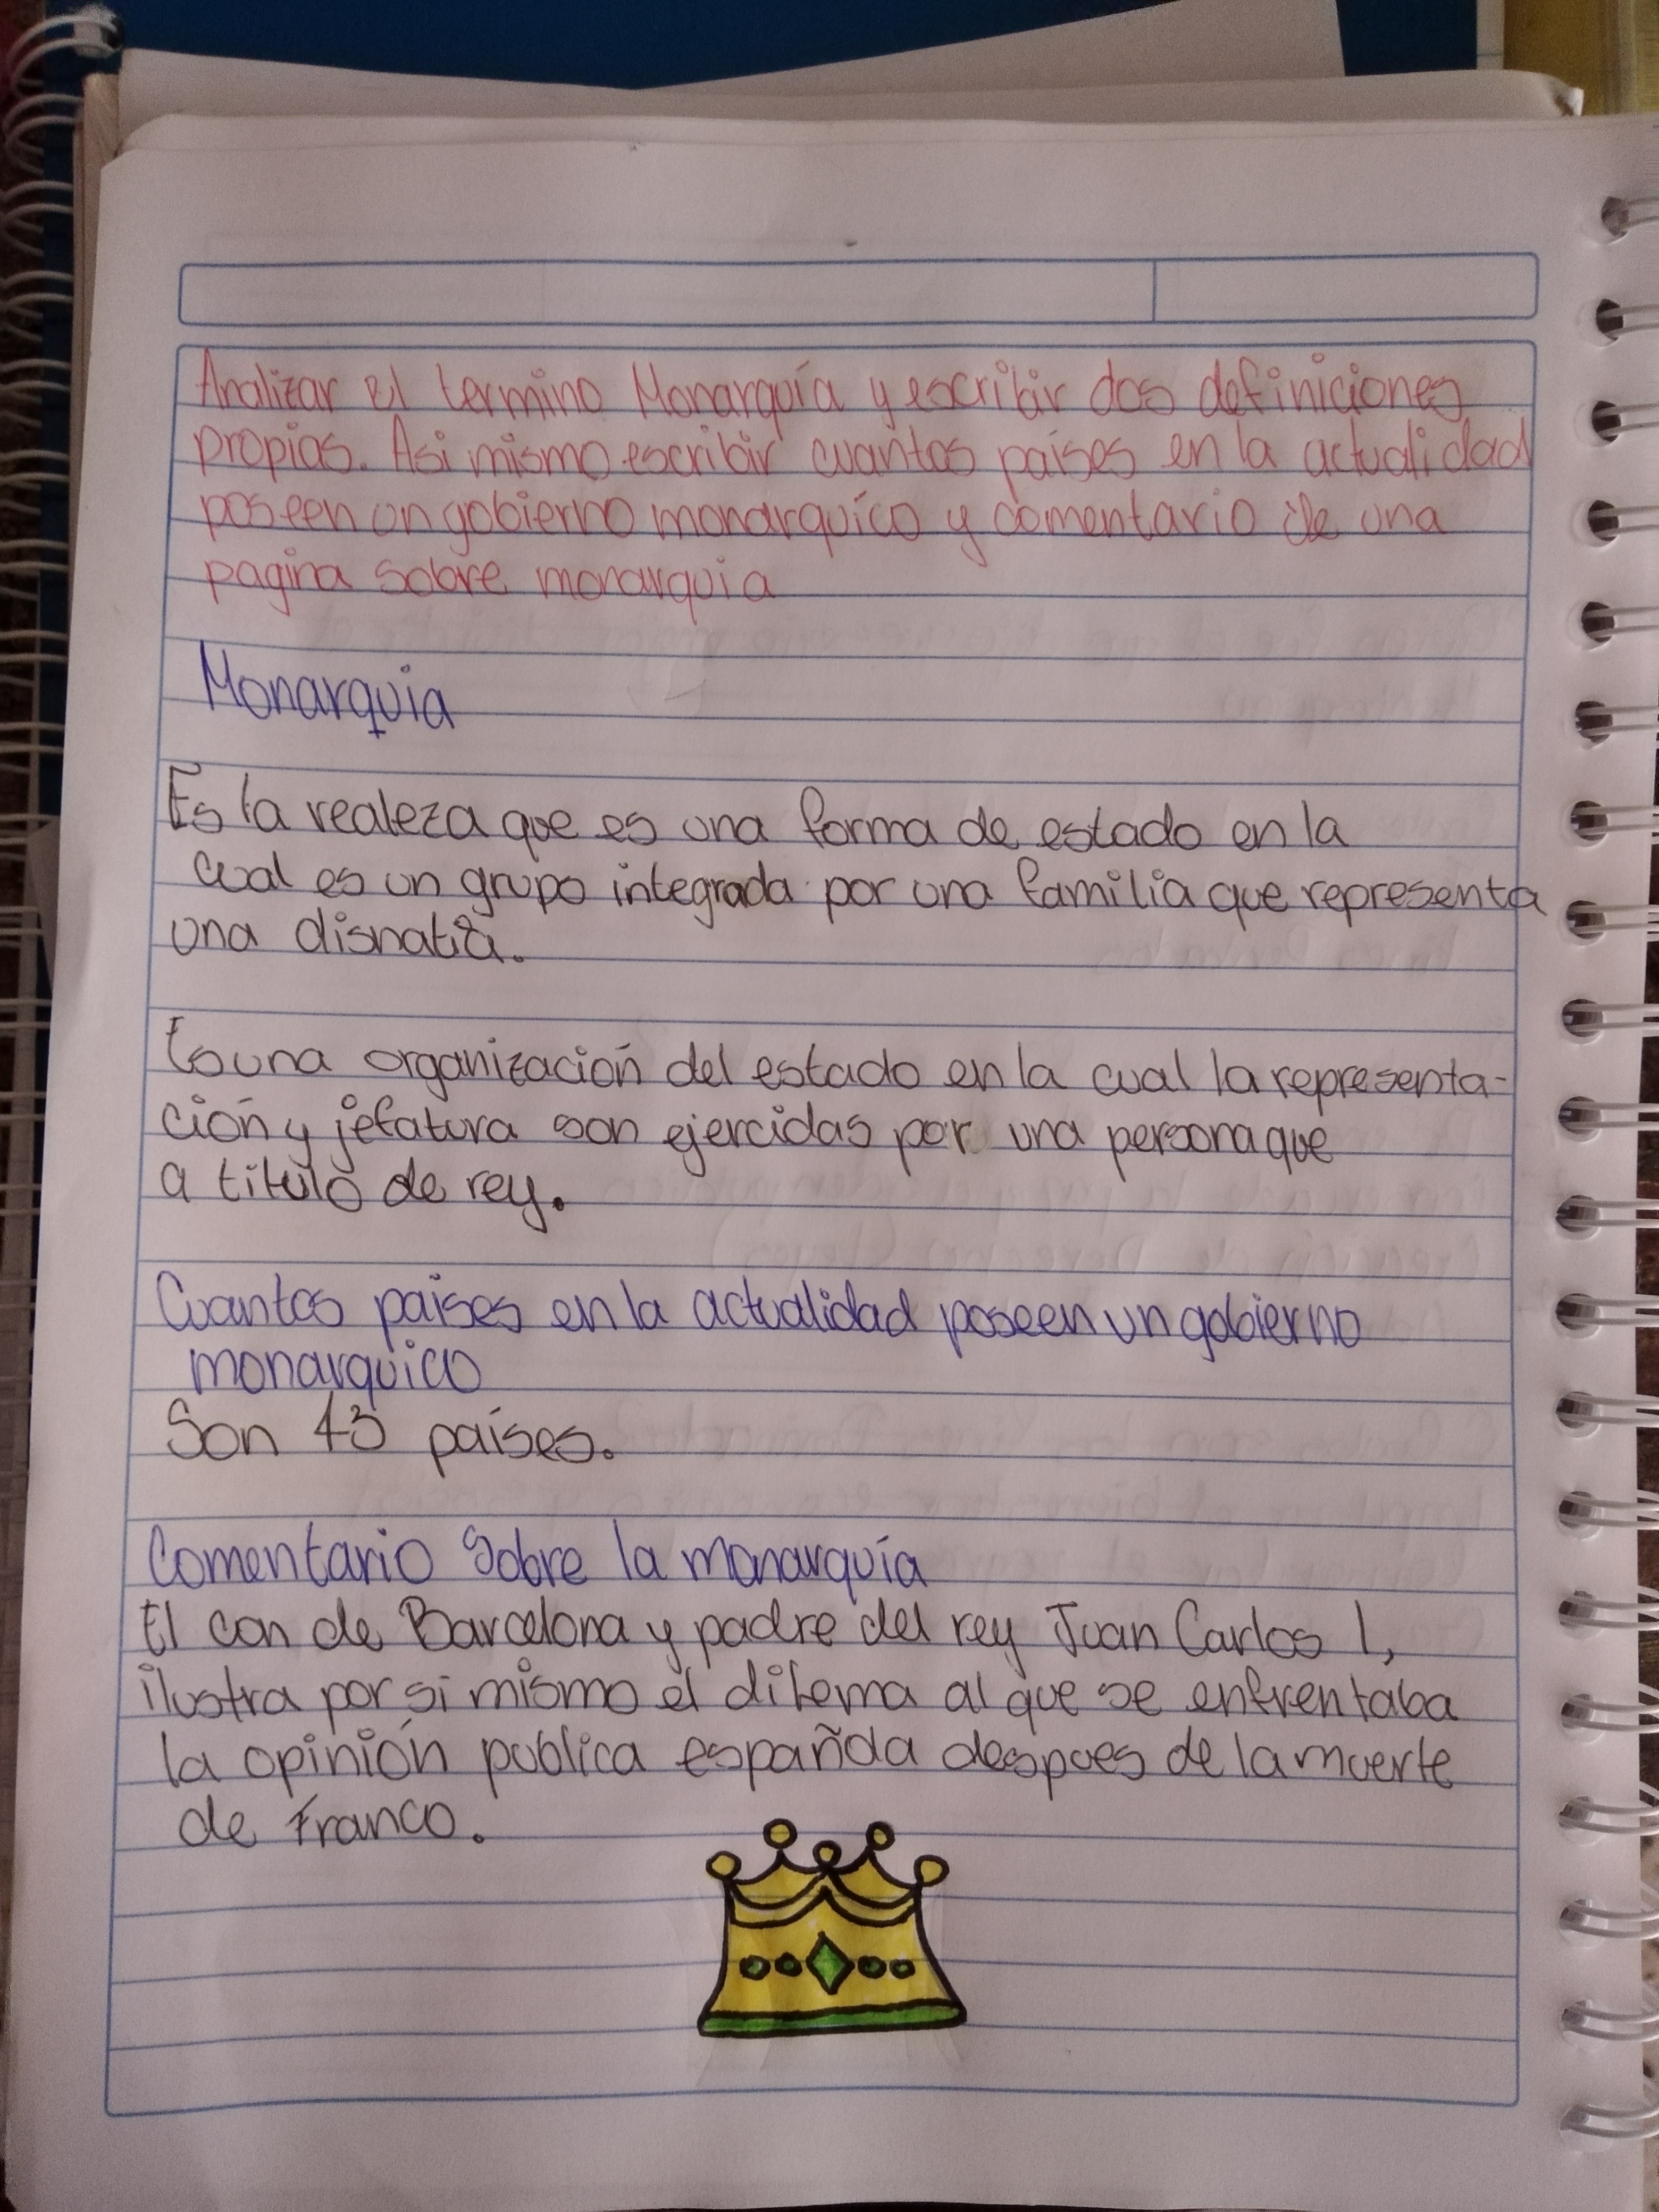 Analizar El termino Monarquía y escribir dos definiciones
propias. Asi mismo escribir cuantos países en la actualidad
poseen un gobierno monarquíco y comentario de una
pagina sobre monarquia
Monarquia
Es la realeza que es una forma de estado en la
cual es un grupo integrada por una familia que representa
una disnatia.
Es una organización del estado en la cual la representa-
ción y jefatura son ejercidas por una persona que
a titulo de rey.
Cuantos países en la actualidad poseen un gobierno
monarquico
Son 43 países.
Comentario Sobre la monarquía
El con de Barcelona y padre del rey Juan Carlos I,
ilustra por si mismo el dilema al que se enfrentaba
la opinión publica española despues de la muerte
de Franco.